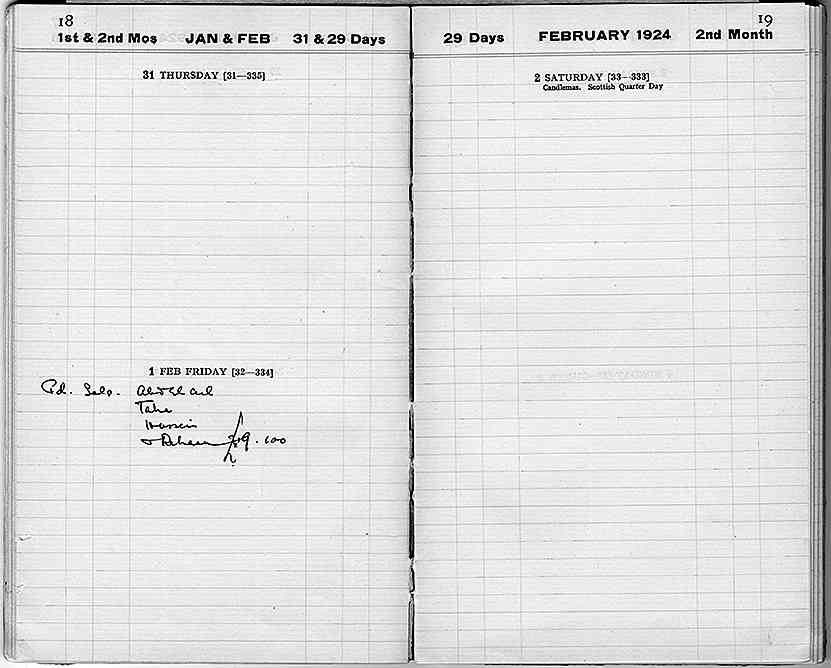 18
1st & 2nd Mos JAN & FEB 31 & 29 Days
31 THURSDAY [31—335]
1 FEB FRIDAY [32—334]
Pd. Sals.
Taha
Hussein
9.100
19
29 Days FEBRUARY 1924 2nd Month
2 SATURDAY [33—333]
Candlemas. Scottish Quarter Day